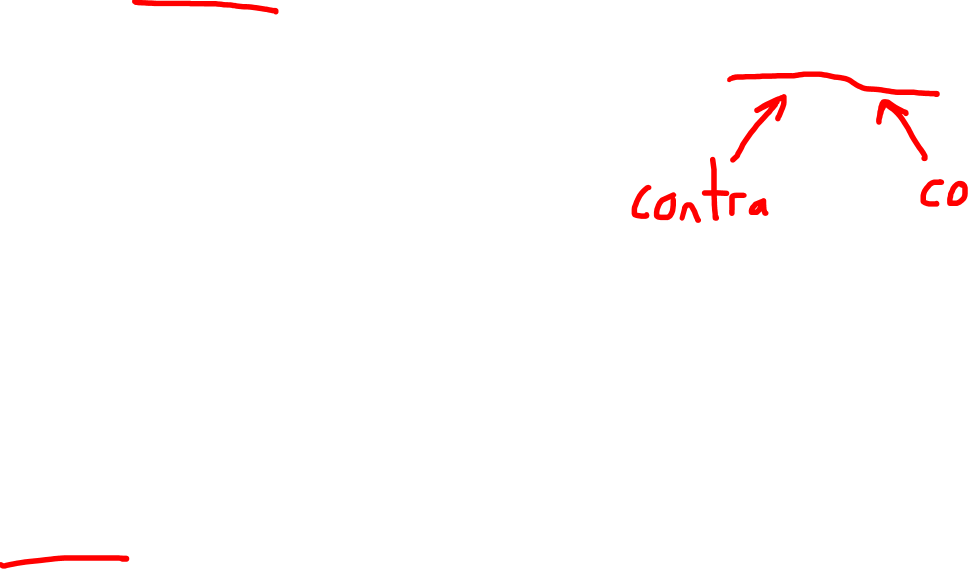 contra co